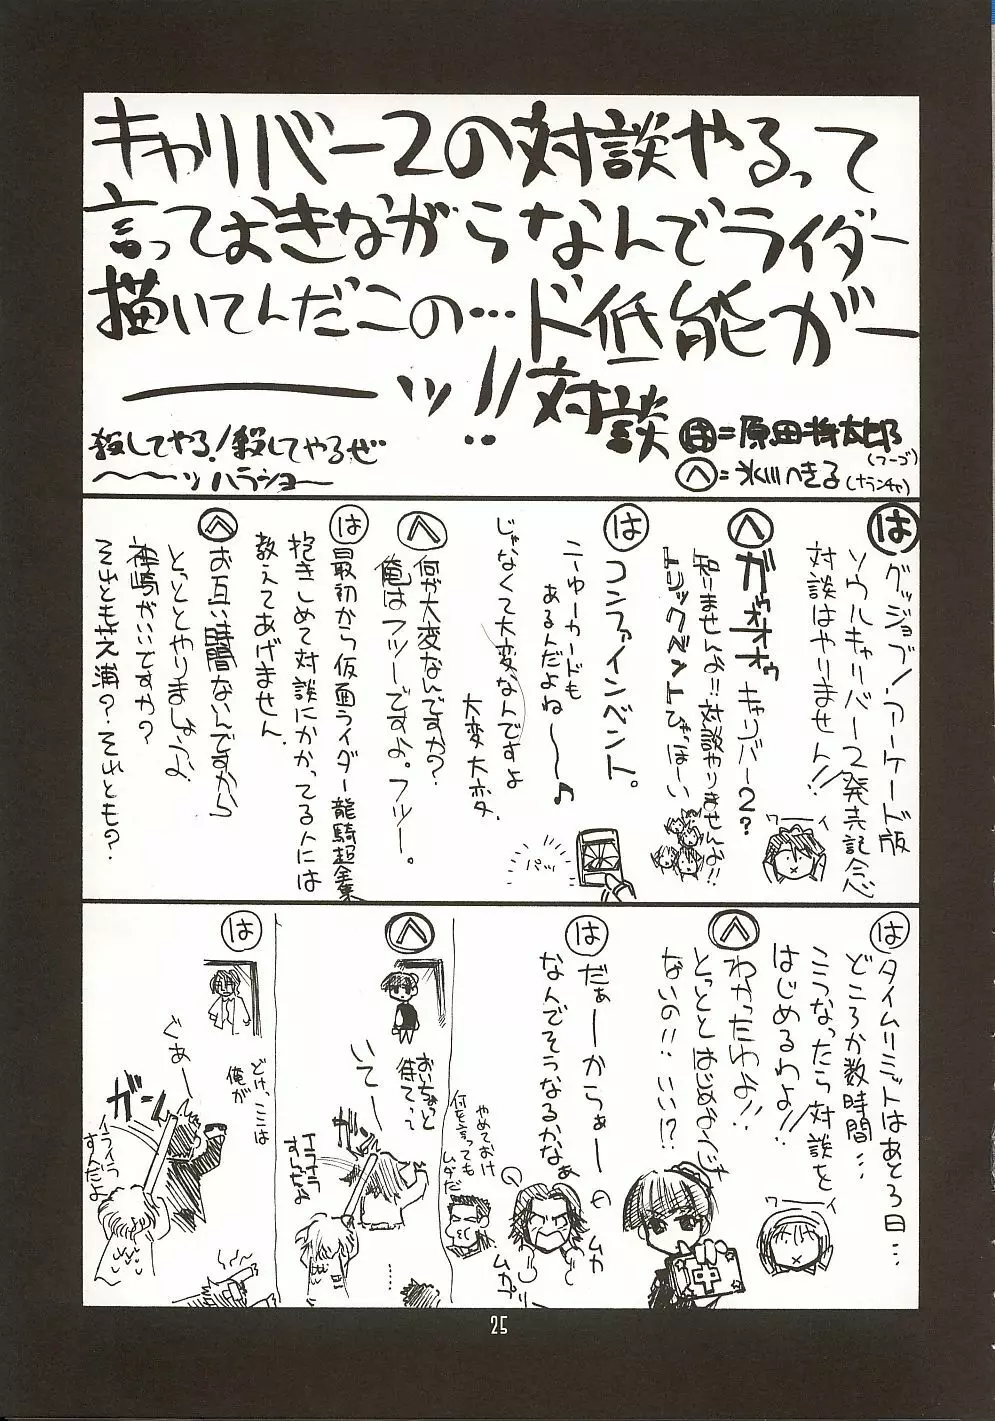 キャリバー2の対談やるって
言っておきながらなんでライダー
描いてんだこの…ド低能がー
――――ッ!!対談
殺してやる!殺してやるぜ
〜〜〜ッハラショー
は=原田将太郎
(フーゴ)
へ=氷川へきる(ナランチャ)
は
グッジョブ!アーケード版
ソウルキャリバー2発売記念
対談はやりません!!
ワーイ
へ
ガゥオオオゥ キャリバー2?
知りませんよ!!対談やりませんよ!!
トリックベントひゃほーい
は
コンファインベント。
ニューカードも
あるんだよね〜〜♪
じゃなくて大変なんですよ
大変大変
パッ
へ
何が大変なんですか?
俺はフツーですよ。フツー。
は
最初から仮面ライダー龍騎超全集
抱きしめて対談にかかってる人には
教えてあげません。
へ
お互い時間ないんですから
とっととやりましょうよ
神崎がいいですか?
それとも芝浦?それとも?
は
タイムリミットはあと3日…
どころか数時間…
こうなったら対談を
はじめるわよ!!
ワーイ
へ
わかったわよ!!
とっととはじめなくっちゃ
ないの!!いい!?
中
は
だぁーからぁー
なんでそうなるかなぁ
ムカ
ムカ
やめておけ
何を言っても
ムダだ
へ
おいちょっと
待て…
いてー
イライラ
すんだよ
……
は
どけ、ここは
俺が
ぐぁー
ガン
イライラ
すんだよ
25